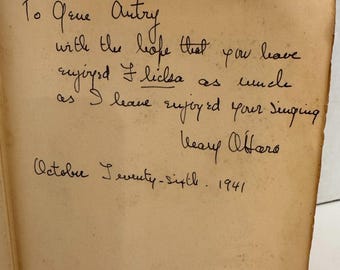 To Gene Autry
with the hope that you have
enjoyed Flicka as much
as I have enjoyed your singing
Mary O'Hara
October Twenty-sixth. 1941